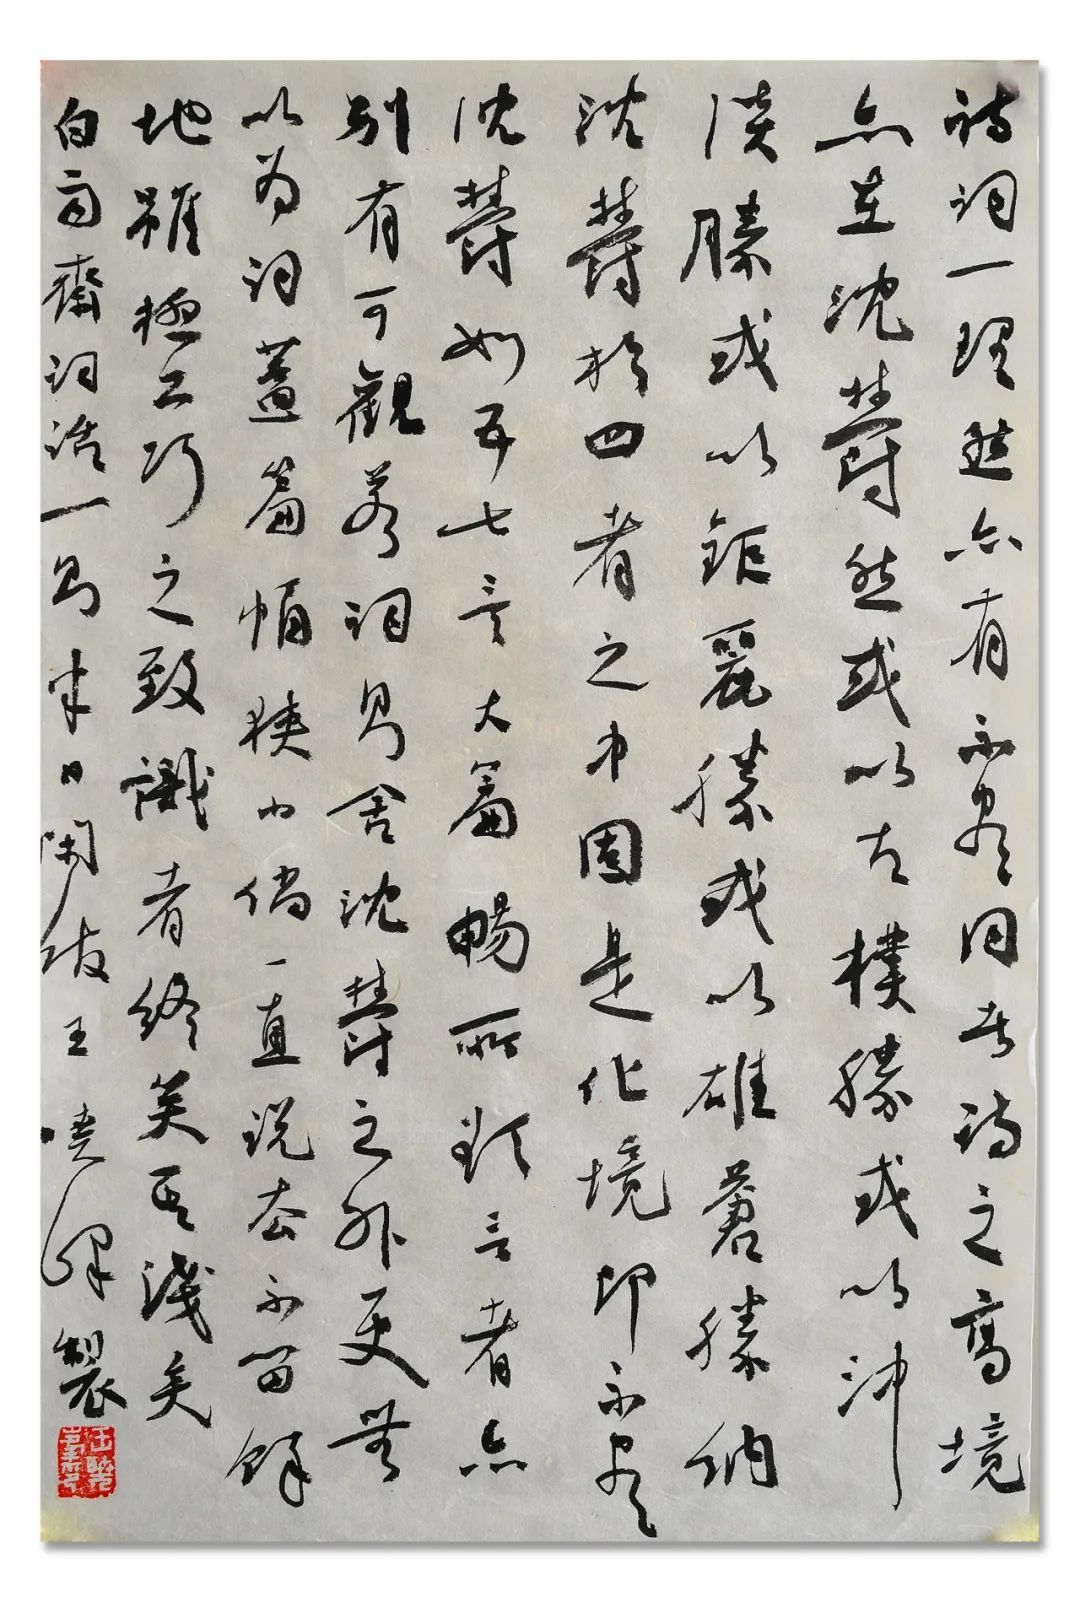 詩詞一理然亦有不盡同者詩之高境
亦在沈鬱然或以古樸勝或以沖
淡勝或以鉅麗勝或以雄蒼勝納
沈鬱於四者之中固是化境即不盡
沈鬱如五七言大篇暢所欲言者亦
別有可觀若詞則舍沈鬱之外更無
以為詞蓋篇幅狹小倘一直說去不留餘
地雖極工巧之致識者終笑其淺矣
白雨齋詞話一則 王 製